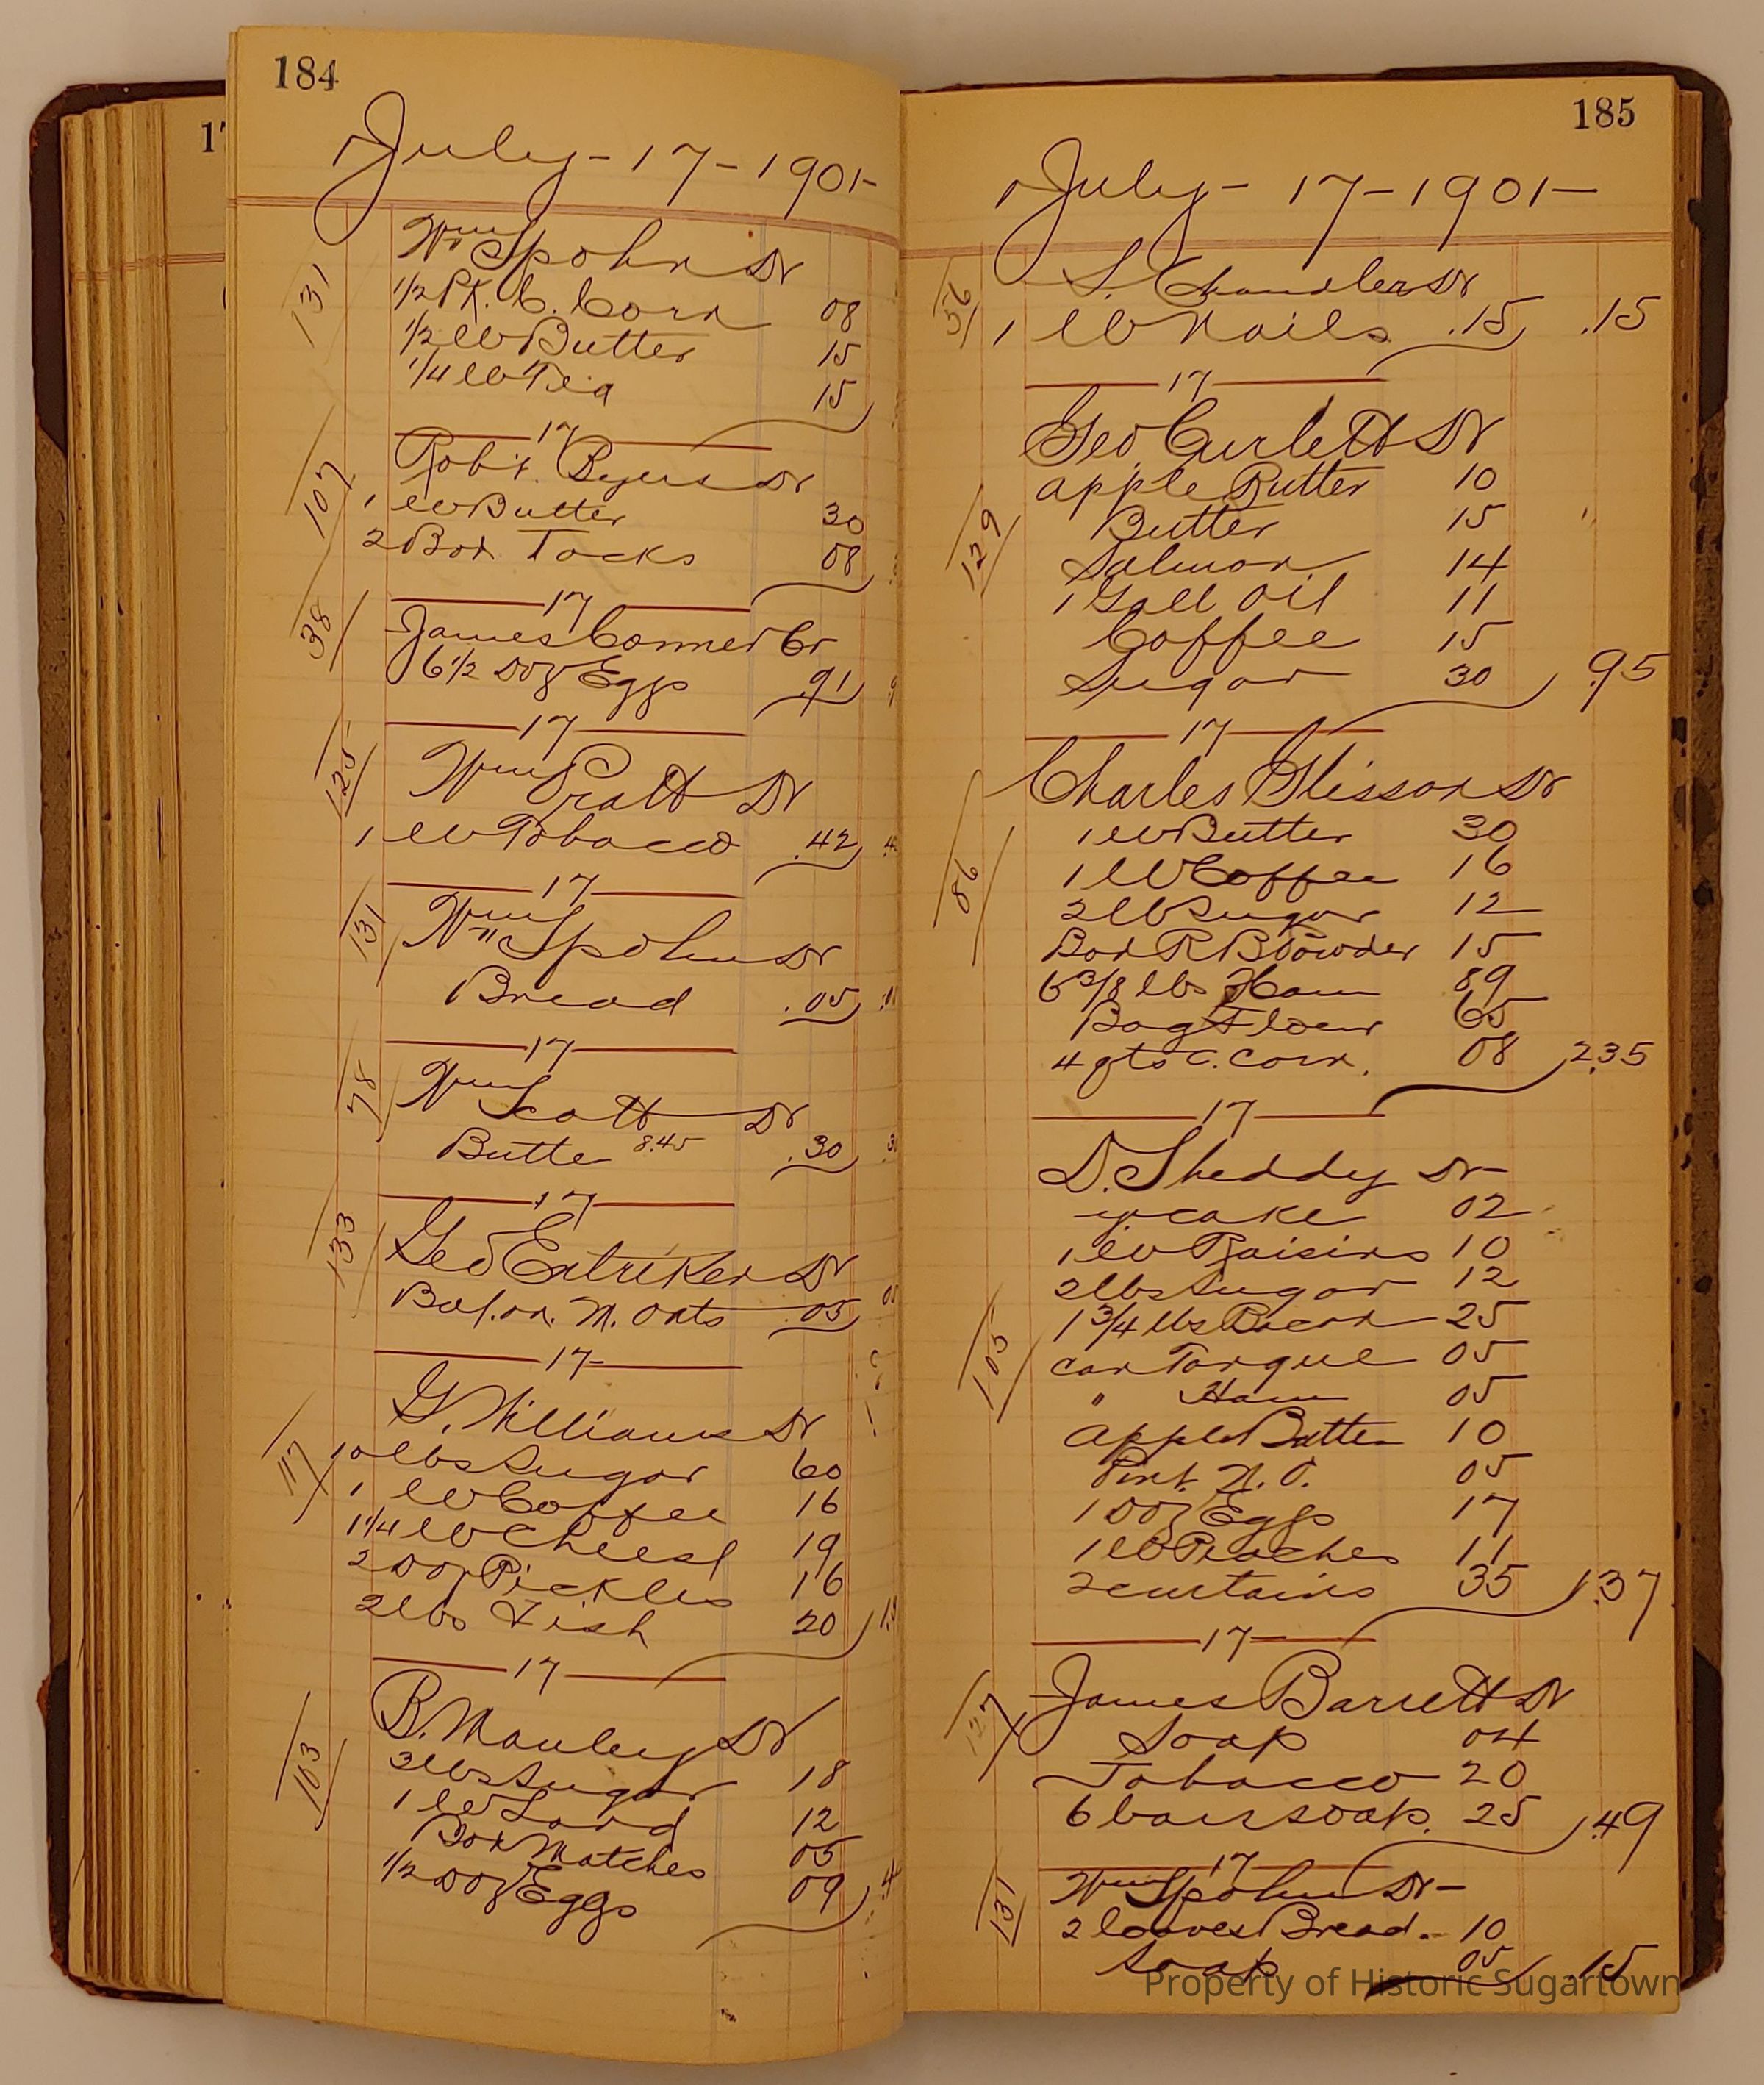 184
July - 17 - 1901 -
Wm Spohn Dr
131
1/2 Pk. C. Corn 08
1/2 lb Butter 15
1/4 lb Tea 15
17
Rob't. Byers Dr
107
1 lb Butter 30
2 Box Tacks 08
17
38
James Conner Cr
6 1/2 Doz Eggs .91
17
125
Wm Pratt Dr
1 lb Tobacco .42
17
131
Wm Spohn Dr
Bread .05
17
78
Wm Scott Dr
Butter 8.45 .30
17
133
Geo Entriken Dr
Bal. on. M. Oats .05
17
G. Williams Dr
117
10 lbs Sugar 60
1 lb Coffee 16
1 1/4 lb Cheese 19
2 Doz Pickles 16
2 lbs Fish 20
17
B. Manley Dr
103
3 lbs Sugar 18
1 lb Lard 12
Box Matches 05
1/2 Doz Eggs 09
185
July - 17 - 1901 -
56
S. Chandler Dr
1 lb Nails .15 .15
17
Geo Curlett Dr
apple Butter 10
129
Butter 15
Salmon 14
1 Gall Oil 11
Coffee 15
Sugar 30 .95
17
Charles Glisson Dr
86
1 lb Butter 30
1 lb Coffee 16
2 lb Sugar 12
Box R B Powder 15
6 3/8 lbs Ham 89
Bag Flour 65
4 qts C. Corn. 08 2.35
17
D. Sheddy Dr -
cake 02
1 lb Raisins 10
2 lbs Sugar 12
105
1 3/4 lbs Bacon 25
can Tongue 05
" Ham 05
apple Butter 10
Pint. 05
1 Doz Eggs 17
1 lb Peaches 11
2 curtains 35 1.37
17
127
James Barrett Dr
Soap 04
Tobacco 20
6 bars soap. 25 .49
17
131
Wm Spohn Dr -
2 loaves Bread. 10
Soap 05 .15
Property of Historic Sugartown